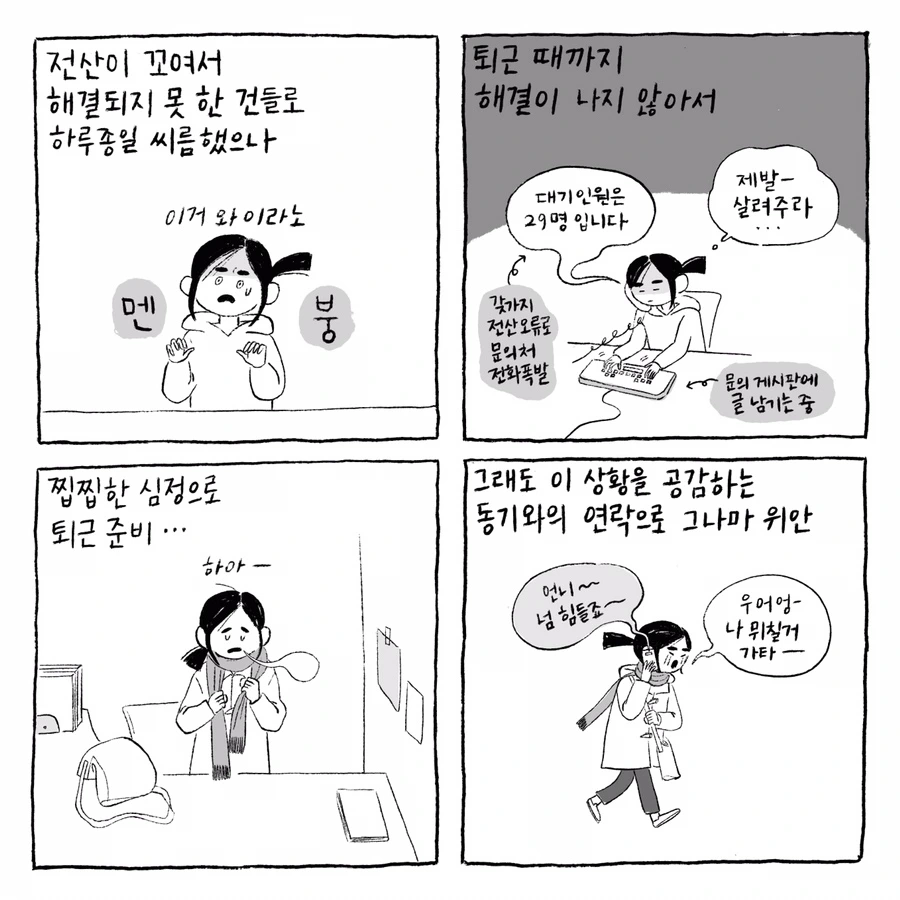 전산이 꼬여서
해결되지 못 한 건들로
하루종일 씨름했으나
이거 와이라노
멘
붕
퇴근 때까지
해결이 나지 않아서
대기인원은
29명 입니다
제발—
살려주라
...
갖가지
전산오류로
문의처
전화폭발
문의 게시판에
글 남기는 중
찝찝한 심정으로
퇴근 준비 ...
하아 —
그래도 이 상황을 공감하는
동기와의 연락으로 그나마 위안
언니~
넘 힘들죠~
우어엉-
나 뮈칠거
가타 —